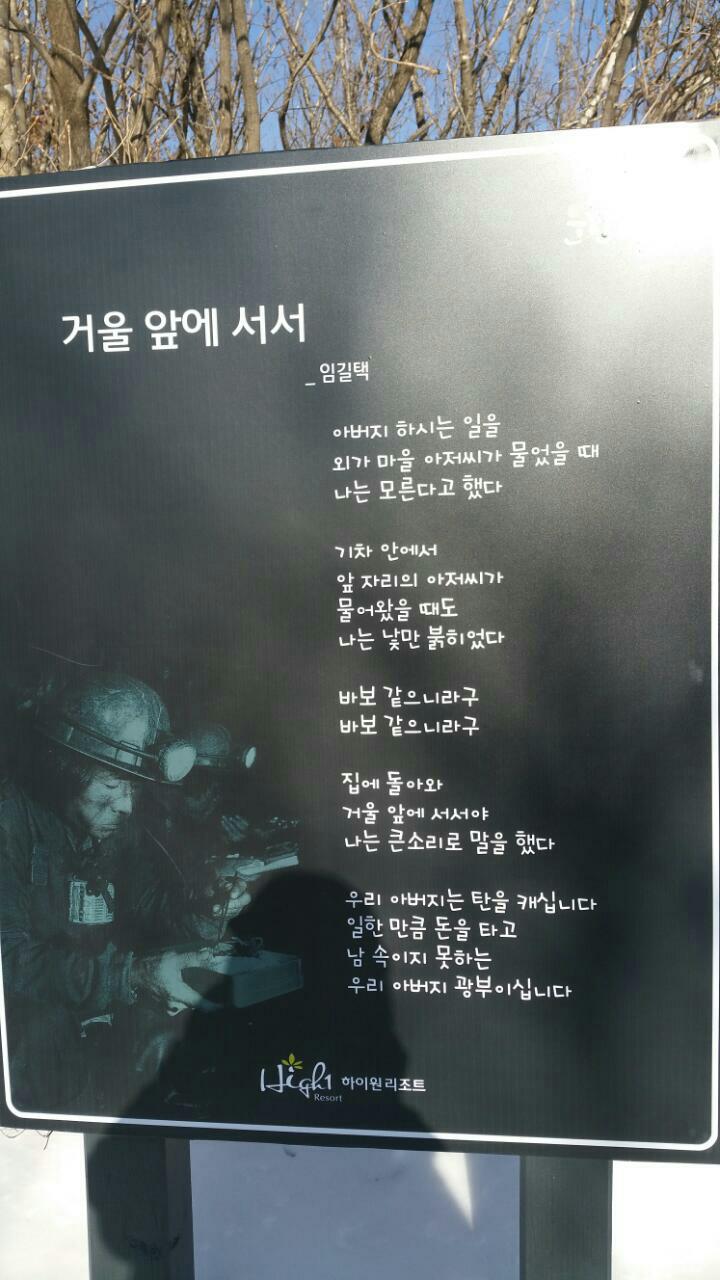 거울 앞에 서서
_ 임길택
아버지 하시는 일을
외가 마을 아저씨가 물었을 때
나는 모른다고 했다
기차 안에서
앞 자리의 아저씨가
물어왔을 때도
나는 낯만 붉히었다
바보 같으니라구
바보 같으니라구
집에 돌아와
거울 앞에 서서야
나는 큰소리로 말을 했다
우리 아버지는 탄을 캐십니다
일한 만큼 돈을 타고
남 속이지 못하는
우리 아버지 광부이십니다
High1 하이원리조트
Resort